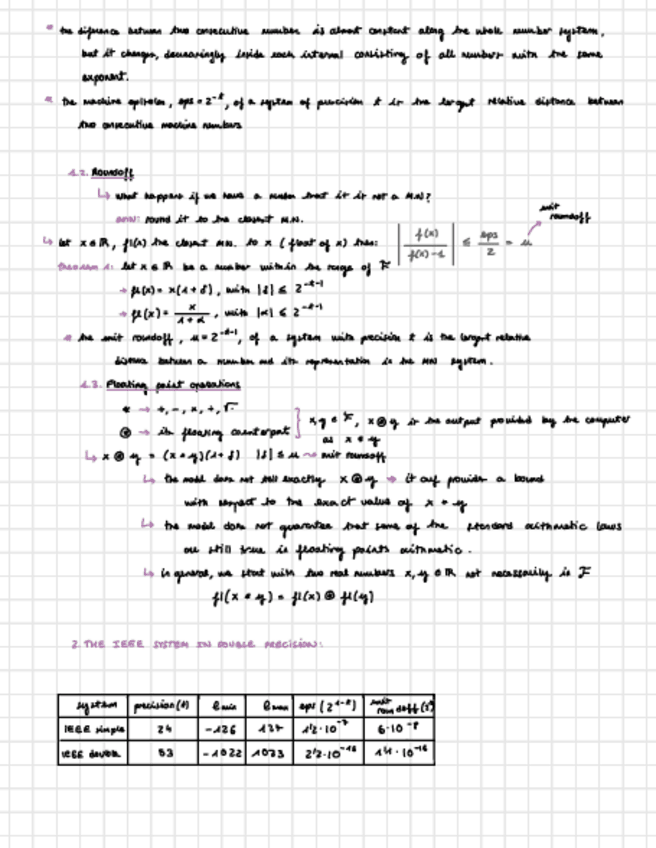 * the diference between two consecutive number is almost constant along the whole number system,
but it changes, decreasingly inside each interval consisting of all numbers with the same
exponent.
* the machine epsilon, eps = 2^-t, of a system of precision t is the largest relative distance between
two consecutive machine numbers
1.2. Roundoff
↳ what happens if we have a number that it is not a M.N?
round it to the closest M.N.
↳ let x ∈ ℝ, fl(x) the closest MN. to x (float of x) then: | f(x) / f(x)-1 | ≤ eps/2 = u → unit roundoff
theorem 1: let x ∈ ℝ be a number within the range of F
→ fl(x) = x(1+δ), with |δ| ≤ 2^-t-1
→ fl(x) = x/(1+α), with |α| ≤ 2^-t-1
* the unit roundoff, u = 2^-t-1, of a system with precision t is the largest relative
distance between a number and its representation in the MN system.
1.3. Floating point operations
* → +, -, ×, ÷, √
⊛ → its floating counterpart } x, y ∈ F, x ⊛ y is the output provided by the computer
as x * y
↳ x ⊛ y = (x * y)(1+δ) |δ| ≤ u → unit roundoff
↳ the model does not tell exactly x ⊛ y → it provides a bound
with respect to the exact value of x * y
↳ the model does not guarantee that some of the standard arithmetic laws
are still true in floating points arithmetic.
↳ in general, we start with two real numbers x, y ∈ ℝ not necessarily in F
fl(x * y) = fl(x) ⊛ fl(y)
2. THE IEEE SYSTEM IN DOUBLE PRECISION:
system precision(t) e min e max eps (2^1-t) unit roundoff
IEEE simple 24 -126 127 1'2·10^-7 6·10^-8
IEEE double 53 -1022 1023 2'2·10^-16 1'1·10^-16